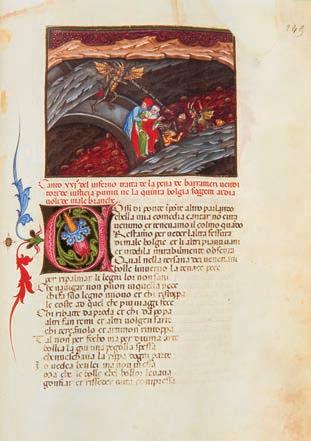 249
Canto xxj. del inferno tratta de la pena de barratieri vendi
tori de iusticia puniti ne la quinta bolgia
de male branche
Osi di ponte ponte altro parlando
chella mia comedia cantar no cura
venimo et tenevamo il colmo quando
Restamo per veder laltra fessura
di male bolgie et li altri pianti vani
et vidila mirabilmente obscura
Qual nella venetiani
bolle linverno la tenace pece
per ripalmar li legni lor non sani
Che navigar non puon in quella vece
chi fa suo legno nuovo et chi ristoppa
le coste ad quel che piu viaggi fece
Chi ribatte da proda et chi da poppa
altri fan remi et altri volgon sarte
chi et artimon rintoppa
Tal non per focho ma per divina arte
bollia la giu una pegola spessa
che nveschava la ripa dogni parte
Io vedea lei ma non
ma che le bolle chel bollor levava
gonfiar et risseder tutta compressa